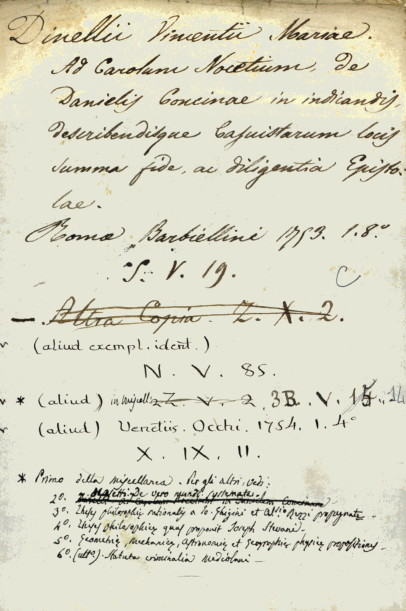 Dinellii Vincentii Mariae.
Ad Carolum Nocetium, de
Danielis Concinae in indicandis,
describendisque Casuistarum locis
summa fide, ac diligentia Episto-
lae.
Romae Barbiellini 1753. 1.8°
S. V. 19.
C
— Altra Copia. Z. X. 2.
(aliud exempl. ident.)
N. V. 85.
* (aliud) in miscell. Z. V. 2 3B. V. 15. 14
(aliud) Venetiis. Occhi. 1754. 1. 4°
X. IX. 11.
* Primo della miscellanea. Per gli altri vedi:
2°. Masetti De vero mundi systemate
3° Theses philosophię rationalis a Io. Ghigini et propugnatę
4° Theses philosophicę quas proponit Joseph
5° Geometrię, mechanicę, astronomię et Geographię physicę propositiones
6° (ult°) Statuta criminalia mediolani —